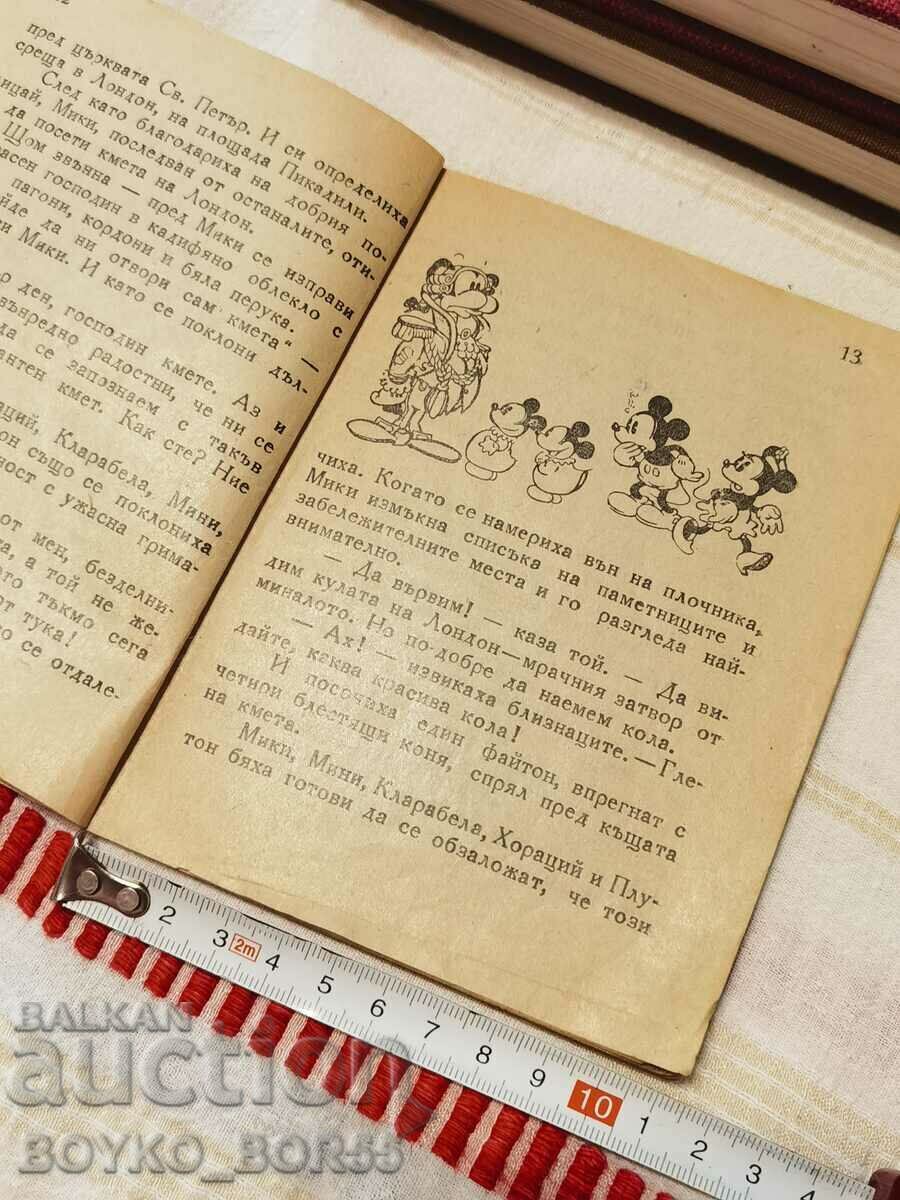 пред църквата Св. Петър. И си определиха
среща в Лондон, на площада Пикадили.
След като благодариха на добрия по-
лицай, Мики, последван от останалите, оти-
да посети кмета на Лондон.
Щом звънна — пред Мики се изправи
господин в кадифяно облекло с
пагони, кордони и бяла перука.
да ни отвори сам кмета“ —
Мики. И като се поклони дъл-
ден, господин кмете. Аз и
радостни, че ни се
да се запознаем с такъв
кмет. Как сте? Ние
Кларабела, Мини,
също се поклониха
с ужасна грима-
от мен, безделни-
а той не же-
тъкмо сега
тука!
се отдале-
13
чиха. Когато се намериха вън на плочника,
Мики измъкна списъка на паметниците и
забележителните места и го разгледа най-
внимателно.
— Да вървим! — каза той. — Да ви-
дим кулата на Лондон—мрачния затвор от
миналото. Но по-добре да наемем кола.
— Ах! — извикаха близнаците. — Гле-
дайте, каква красива кола!
И посочиха един файтон, впрегнат с
четири блестящи коня, спрял пред къщата
на кмета.
Мики, Мини, Кларабела, Хораций и Плу-
тон бяха готови да се обзаложат, че този
2 3 2m 4 5 6 7 8 9 10 1 2 3 4
BALKAN
auction
BOYKO_BOR55